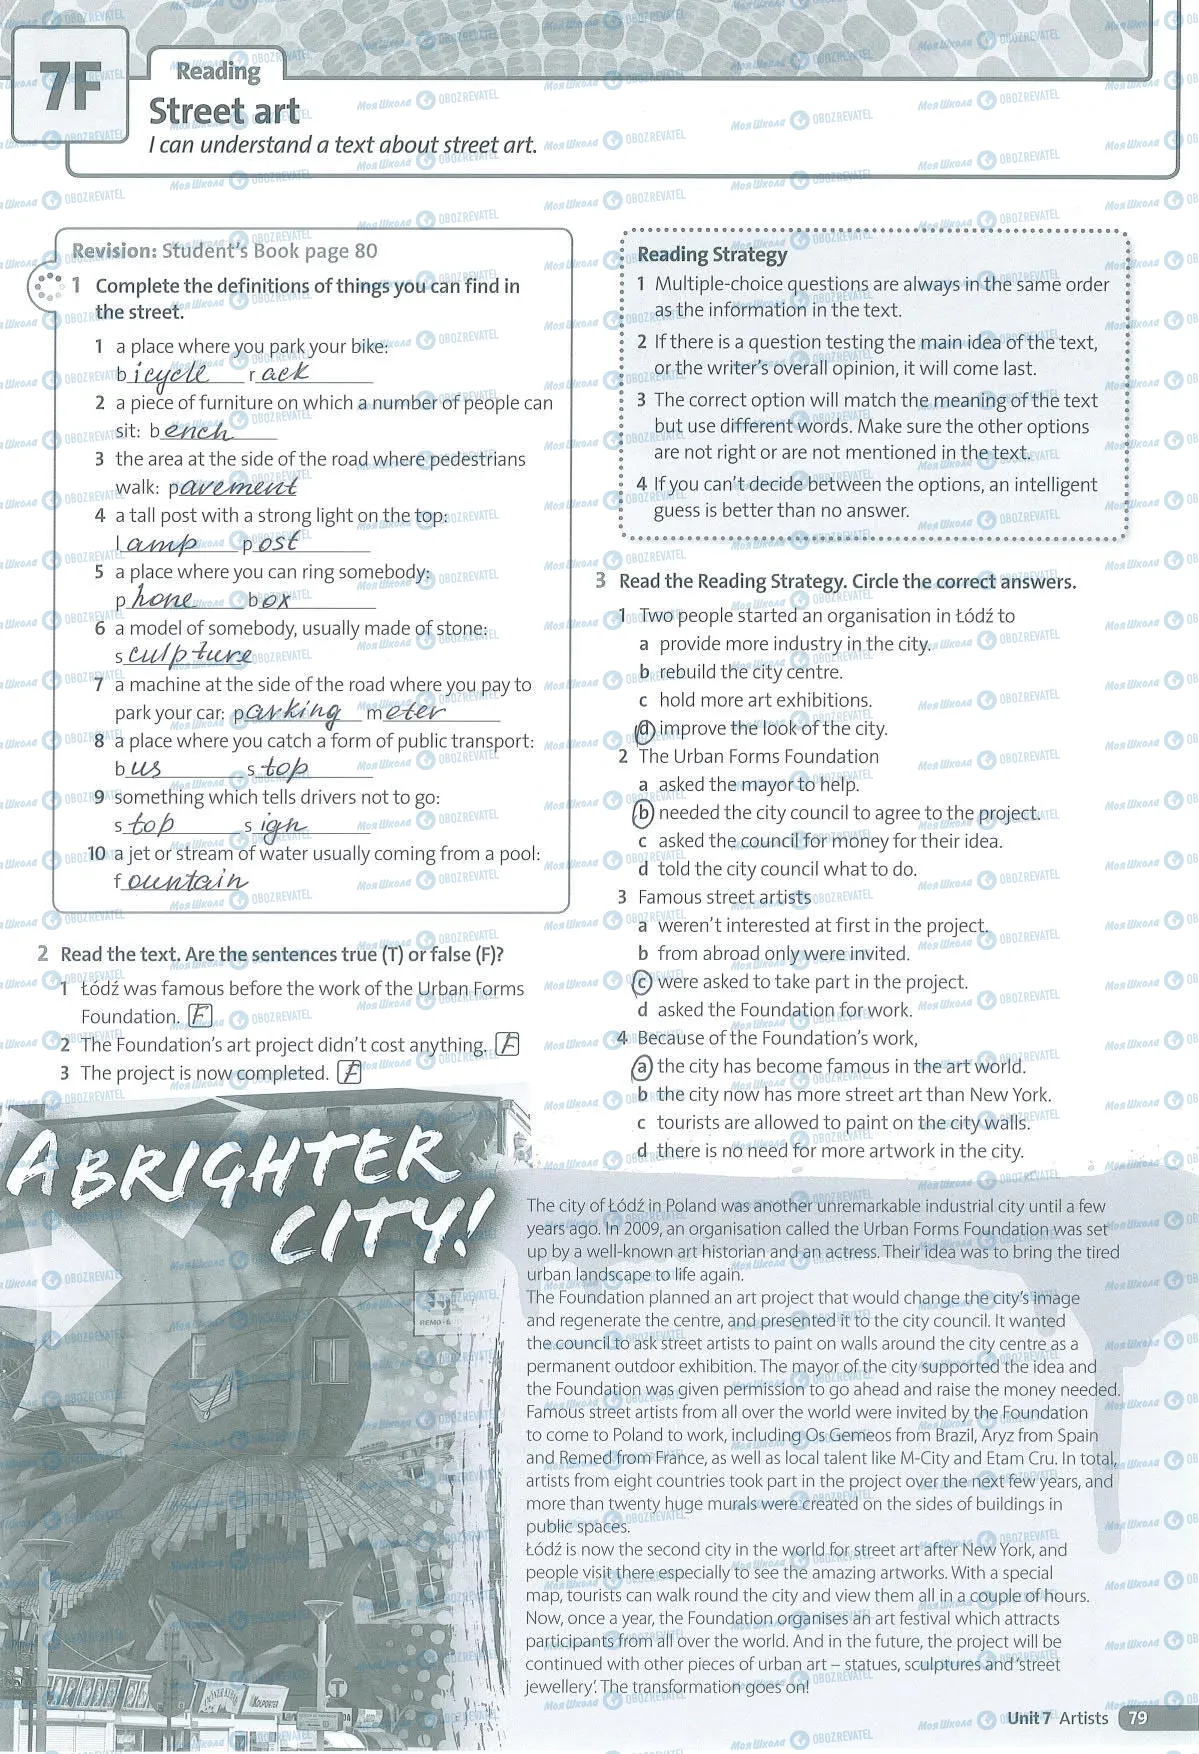 7F
Reading
Street art
I can understand a text about street art.
Revision: Student's Book page 80
1 Complete the definitions of things you can find in
the street.
1 a place where you park your bike:
bicycle rack
2 a piece of furniture on which a number of people can
sit: bench
3 the area at the side of the road where pedestrians
walk: pavement
4 a tall post with a strong light on the top:
lamp post
5 a place where you can ring somebody:
phone box
6 a model of somebody, usually made of stone:
sculpture
7 a machine at the side of the road where you pay to
park your car: parking meter
8 a place where you catch a form of public transport:
bus stop
9 something which tells drivers not to go:
stop sign
10 a jet or stream of water usually coming from a pool:
fountain
2 Read the text. Are the sentences true (T) or false (F)?
1 Łódź was famous before the work of the Urban Forms
Foundation. F
2 The Foundation's art project didn't cost anything. F
3 The project is now completed. F
Reading Strategy
1 Multiple-choice questions are always in the same order
as the information in the text.
2 If there is a question testing the main idea of the text,
or the writer's overall opinion, it will come last.
3 The correct option will match the meaning of the text
but use different words. Make sure the other options
are not right or are not mentioned in the text.
4 If you can't decide between the options, an intelligent
guess is better than no answer.
3 Read the Reading Strategy. Circle the correct answers.
1 Two people started an organisation in Łódź to
a provide more industry in the city.
b rebuild the city centre.
c hold more art exhibitions.
d improve the look of the city.
2 The Urban Forms Foundation
a asked the mayor to help.
b needed the city council to agree to the project.
c asked the council for money for their idea.
d told the city council what to do.
3 Famous street artists
a weren't interested at first in the project.
b from abroad only were invited.
c were asked to take part in the project.
d asked the Foundation for work.
4 Because of the Foundation's work,
a the city has become famous in the art world.
b the city now has more street art than New York.
c tourists are allowed to paint on the city walls.
d there is no need for more artwork in the city.
A BRIGHTER
CITY!
The city of Łódź in Poland was another unremarkable industrial city until a few
years ago. In 2009, an organisation called the Urban Forms Foundation was set
up by a well-known art historian and an actress. Their idea was to bring the tired
urban landscape to life again.
The Foundation planned an art project that would change the city's image
and regenerate the centre, and presented it to the city council. It wanted
the council to ask street artists to paint on walls around the city centre as a
permanent outdoor exhibition. The mayor of the city supported the idea and
the Foundation was given permission to go ahead and raise the money needed.
Famous street artists from all over the world were invited by the Foundation
to come to Poland to work, including Os Gemeos from Brazil, Aryz from Spain
and Remed from France, as well as local talent like M-City and Etam Cru. In total,
artists from eight countries took part in the project over the next few years, and
more than twenty huge murals were created on the sides of buildings in
public spaces.
Łódź is now the second city in the world for street art after New York, and
people visit there especially to see the amazing artworks. With a special
map, tourists can walk round the city and view them all in a couple of hours.
Now, once a year, the Foundation organises an art festival which attracts
participants from all over the world. And in the future, the project will be
continued with other pieces of urban art – statues, sculptures and 'street
jewellery'. The transformation goes on!
Unit 7 Artists 79
Моя Школа OBOZREVATEL